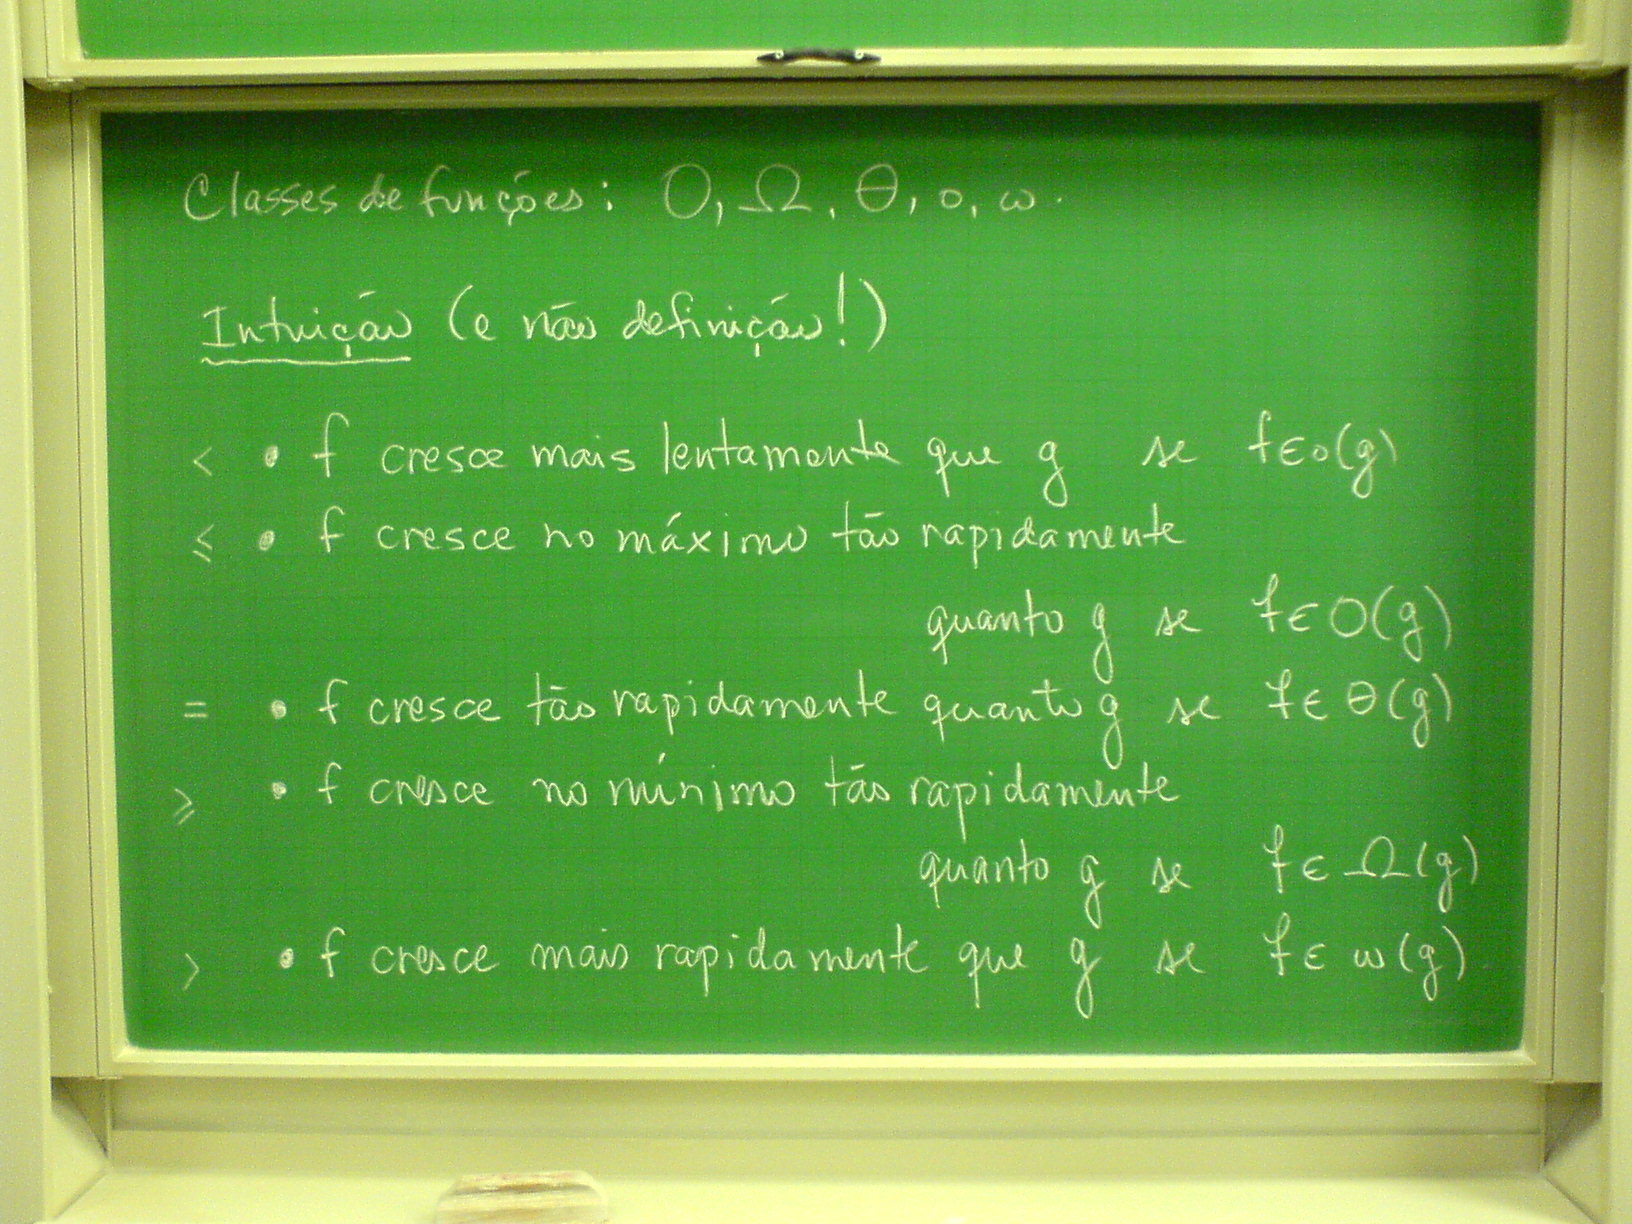 Classes de funções: O, Ω, θ, o, ω.
Intuição (e não definição!)
< • f cresce mais lentamente que g se f ∈ o(g)
≤ • f cresce no máximo tão rapidamente
quanto g se f ∈ O(g)
= • f cresce tão rapidamente quanto g se f ∈ θ(g)
≥ • f cresce no mínimo tão rapidamente
quanto g se f ∈ Ω(g)
> • f cresce mais rapidamente que g se f ∈ ω(g).